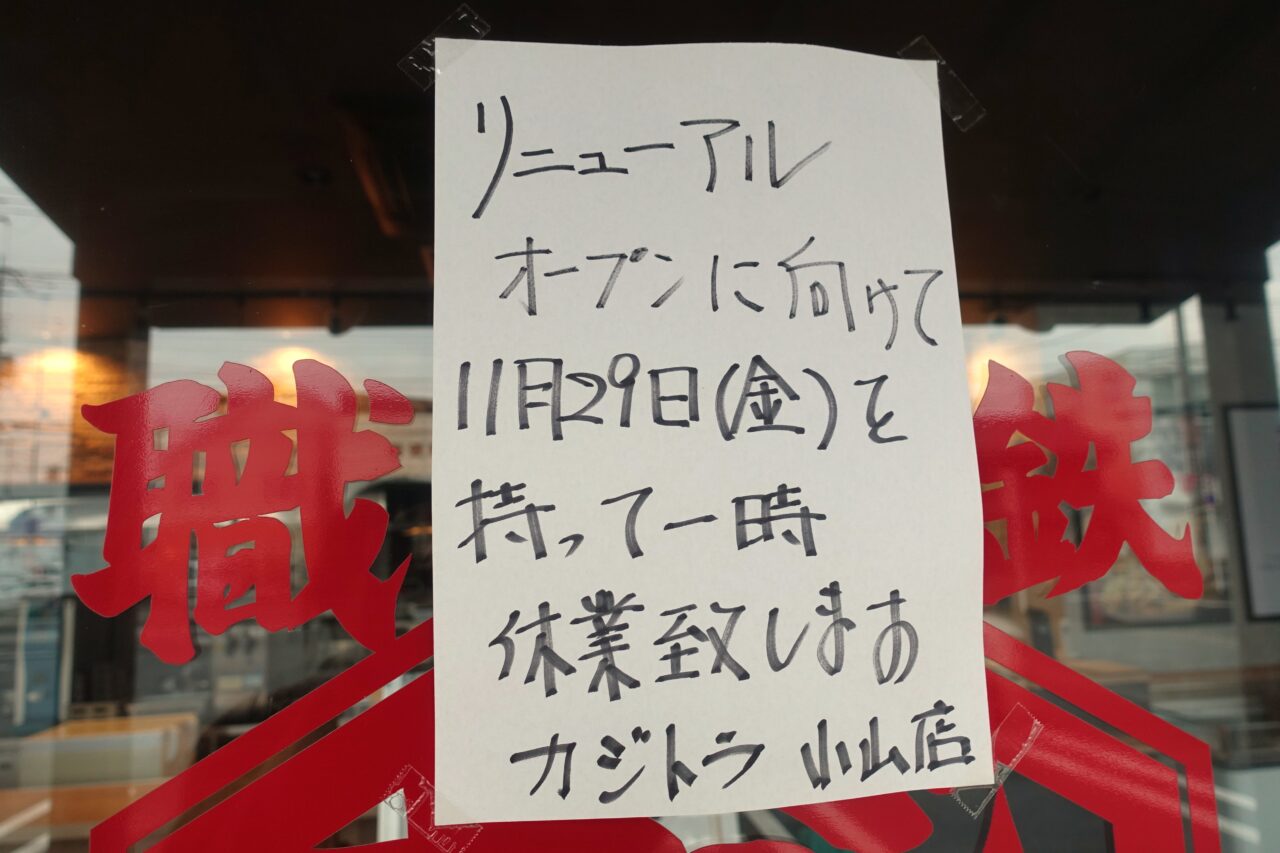 リニューアル
オープンに向けて
11月29日(金)を
持って一時
休業致します
カジトラ 小山店
職
鉄